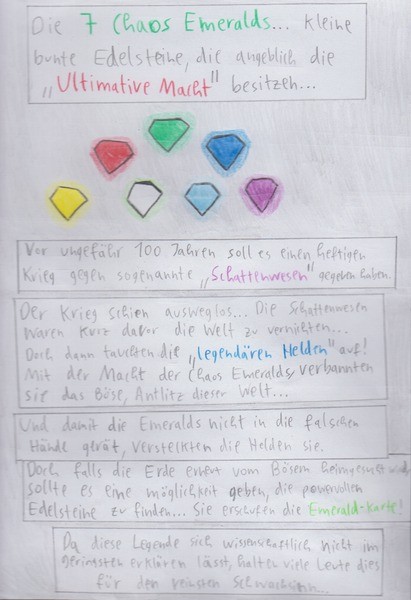 Die 7 Chaos Emeralds... kleine
bunte Edelsteine, die angeblich die
„Ultimative Macht" besitzen...
Vor ungefähr 100 Jahren soll es einen heftigen
Krieg gegen sogenannte „Schattenwesen" gegeben haben.
Der Krieg schien ausweglos... Die Schattenwesen
waren kurz davor die Welt zu vernichten...
Doch dann tauchten die „legendären Helden" auf!
Mit der Macht der Chaos Emeralds, verbannten
sie das Böse, Antlitz dieser Welt...
Und damit die Emeralds nicht in die falschen
Hände gerät, versteckten die Helden sie.
Doch falls die Erde erneut vom Bösem heimgesucht wird,
sollte es eine möglichkeit geben, die powervollen
Edelsteine zu finden... Sie erschufen die Emerald-Karte!
Da diese Legende sich wissenschaftlich nicht im
geringsten erklären lässt, halten viele Leute dies
für den reinsten Schwachsinn...